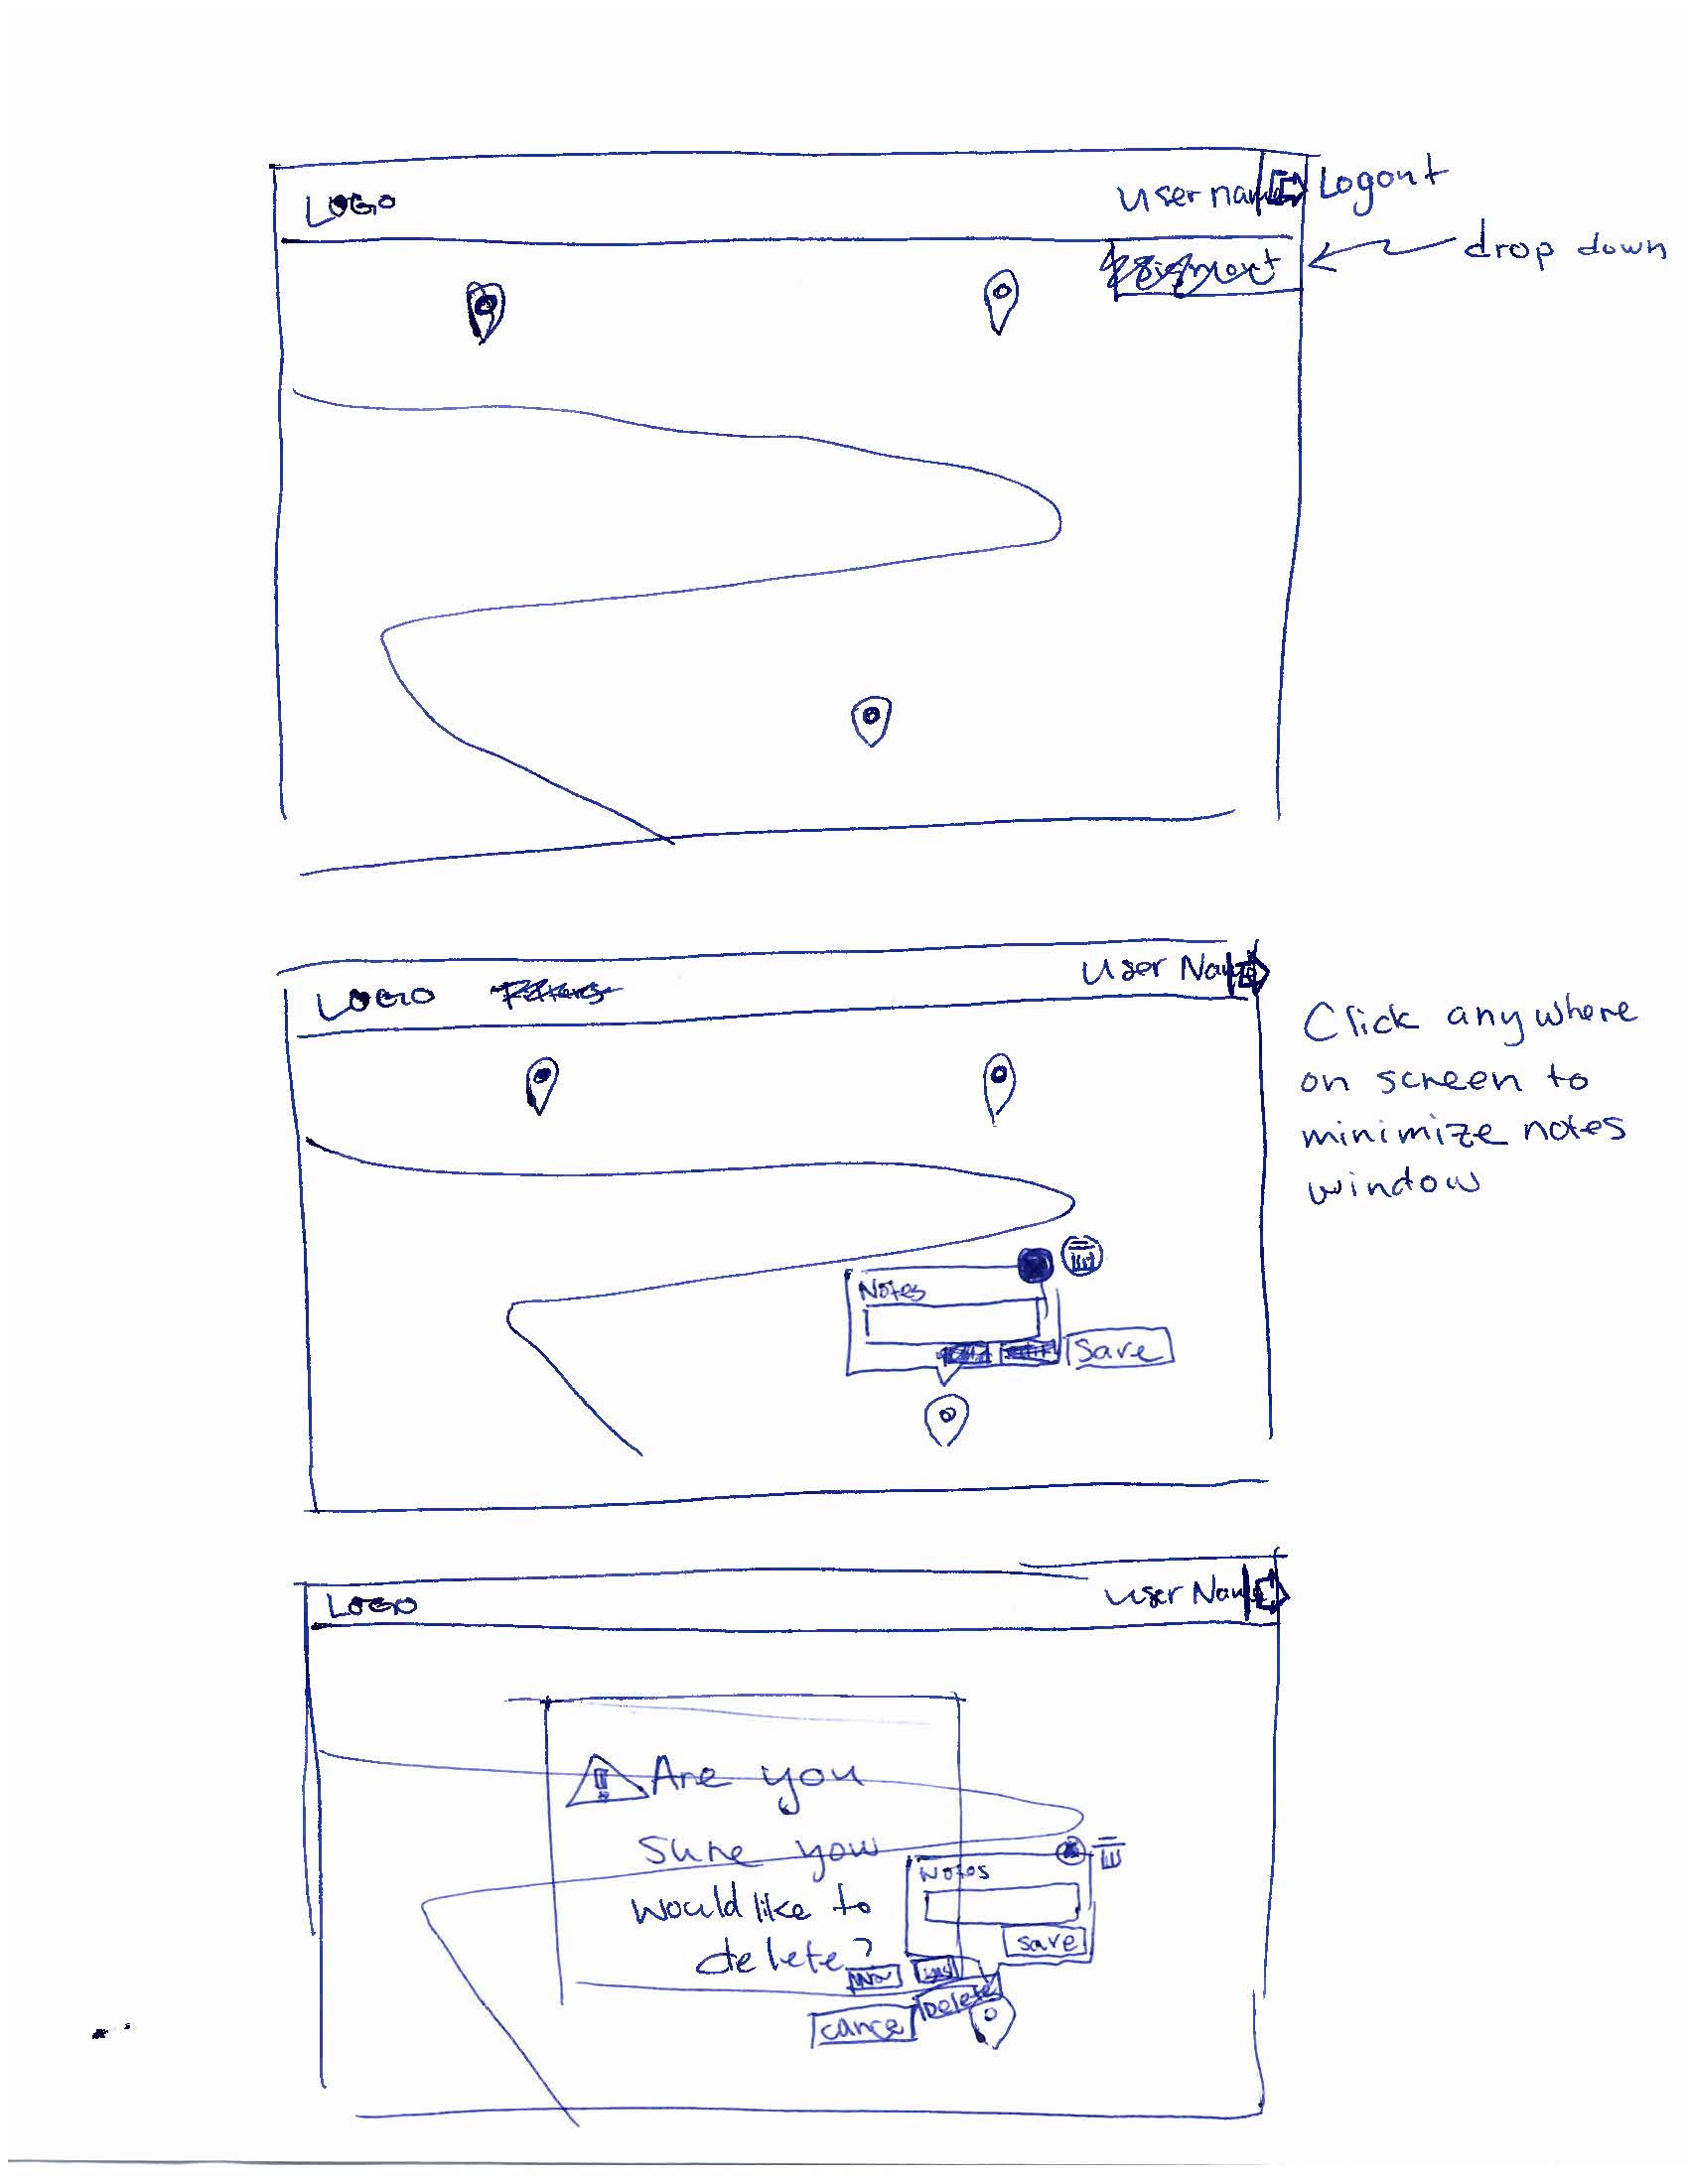 LOGO
User name
Logout
drop down
LOGO
User Name
Click anywhere
on screen to
minimize notes
window
Notes
Save
LOGO
User Name
Are you
sure you
would like to
delete?
Notes
save
No
yes
Delete
cancel